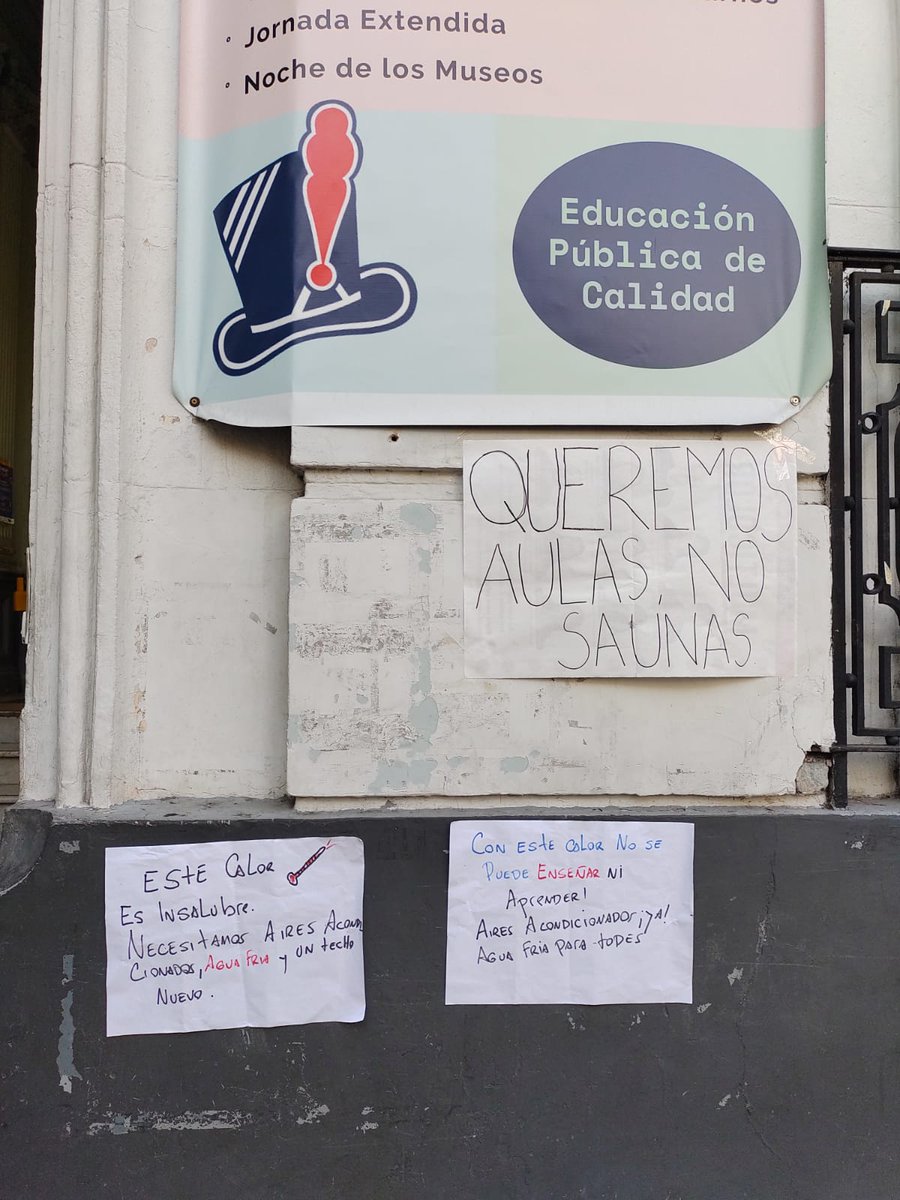 • Jornada Extendida
• Noche de los Museos
Educación
Pública de
Calidad
QUEREMOS
AULAS, NO
SAUNAS
ESTE CALOR
ES INSALUBRE.
NECESITAMOS AIRES ACONDI
CIONADOS, AGUA FRIA Y UN TECHO
NUEVO.
CON ESTE CALOR NO SE
PUEDE ENSEÑAR NI
APRENDER!
AIRES ACONDICIONADOS ¡YA!
AGUA FRIA PARA TODES